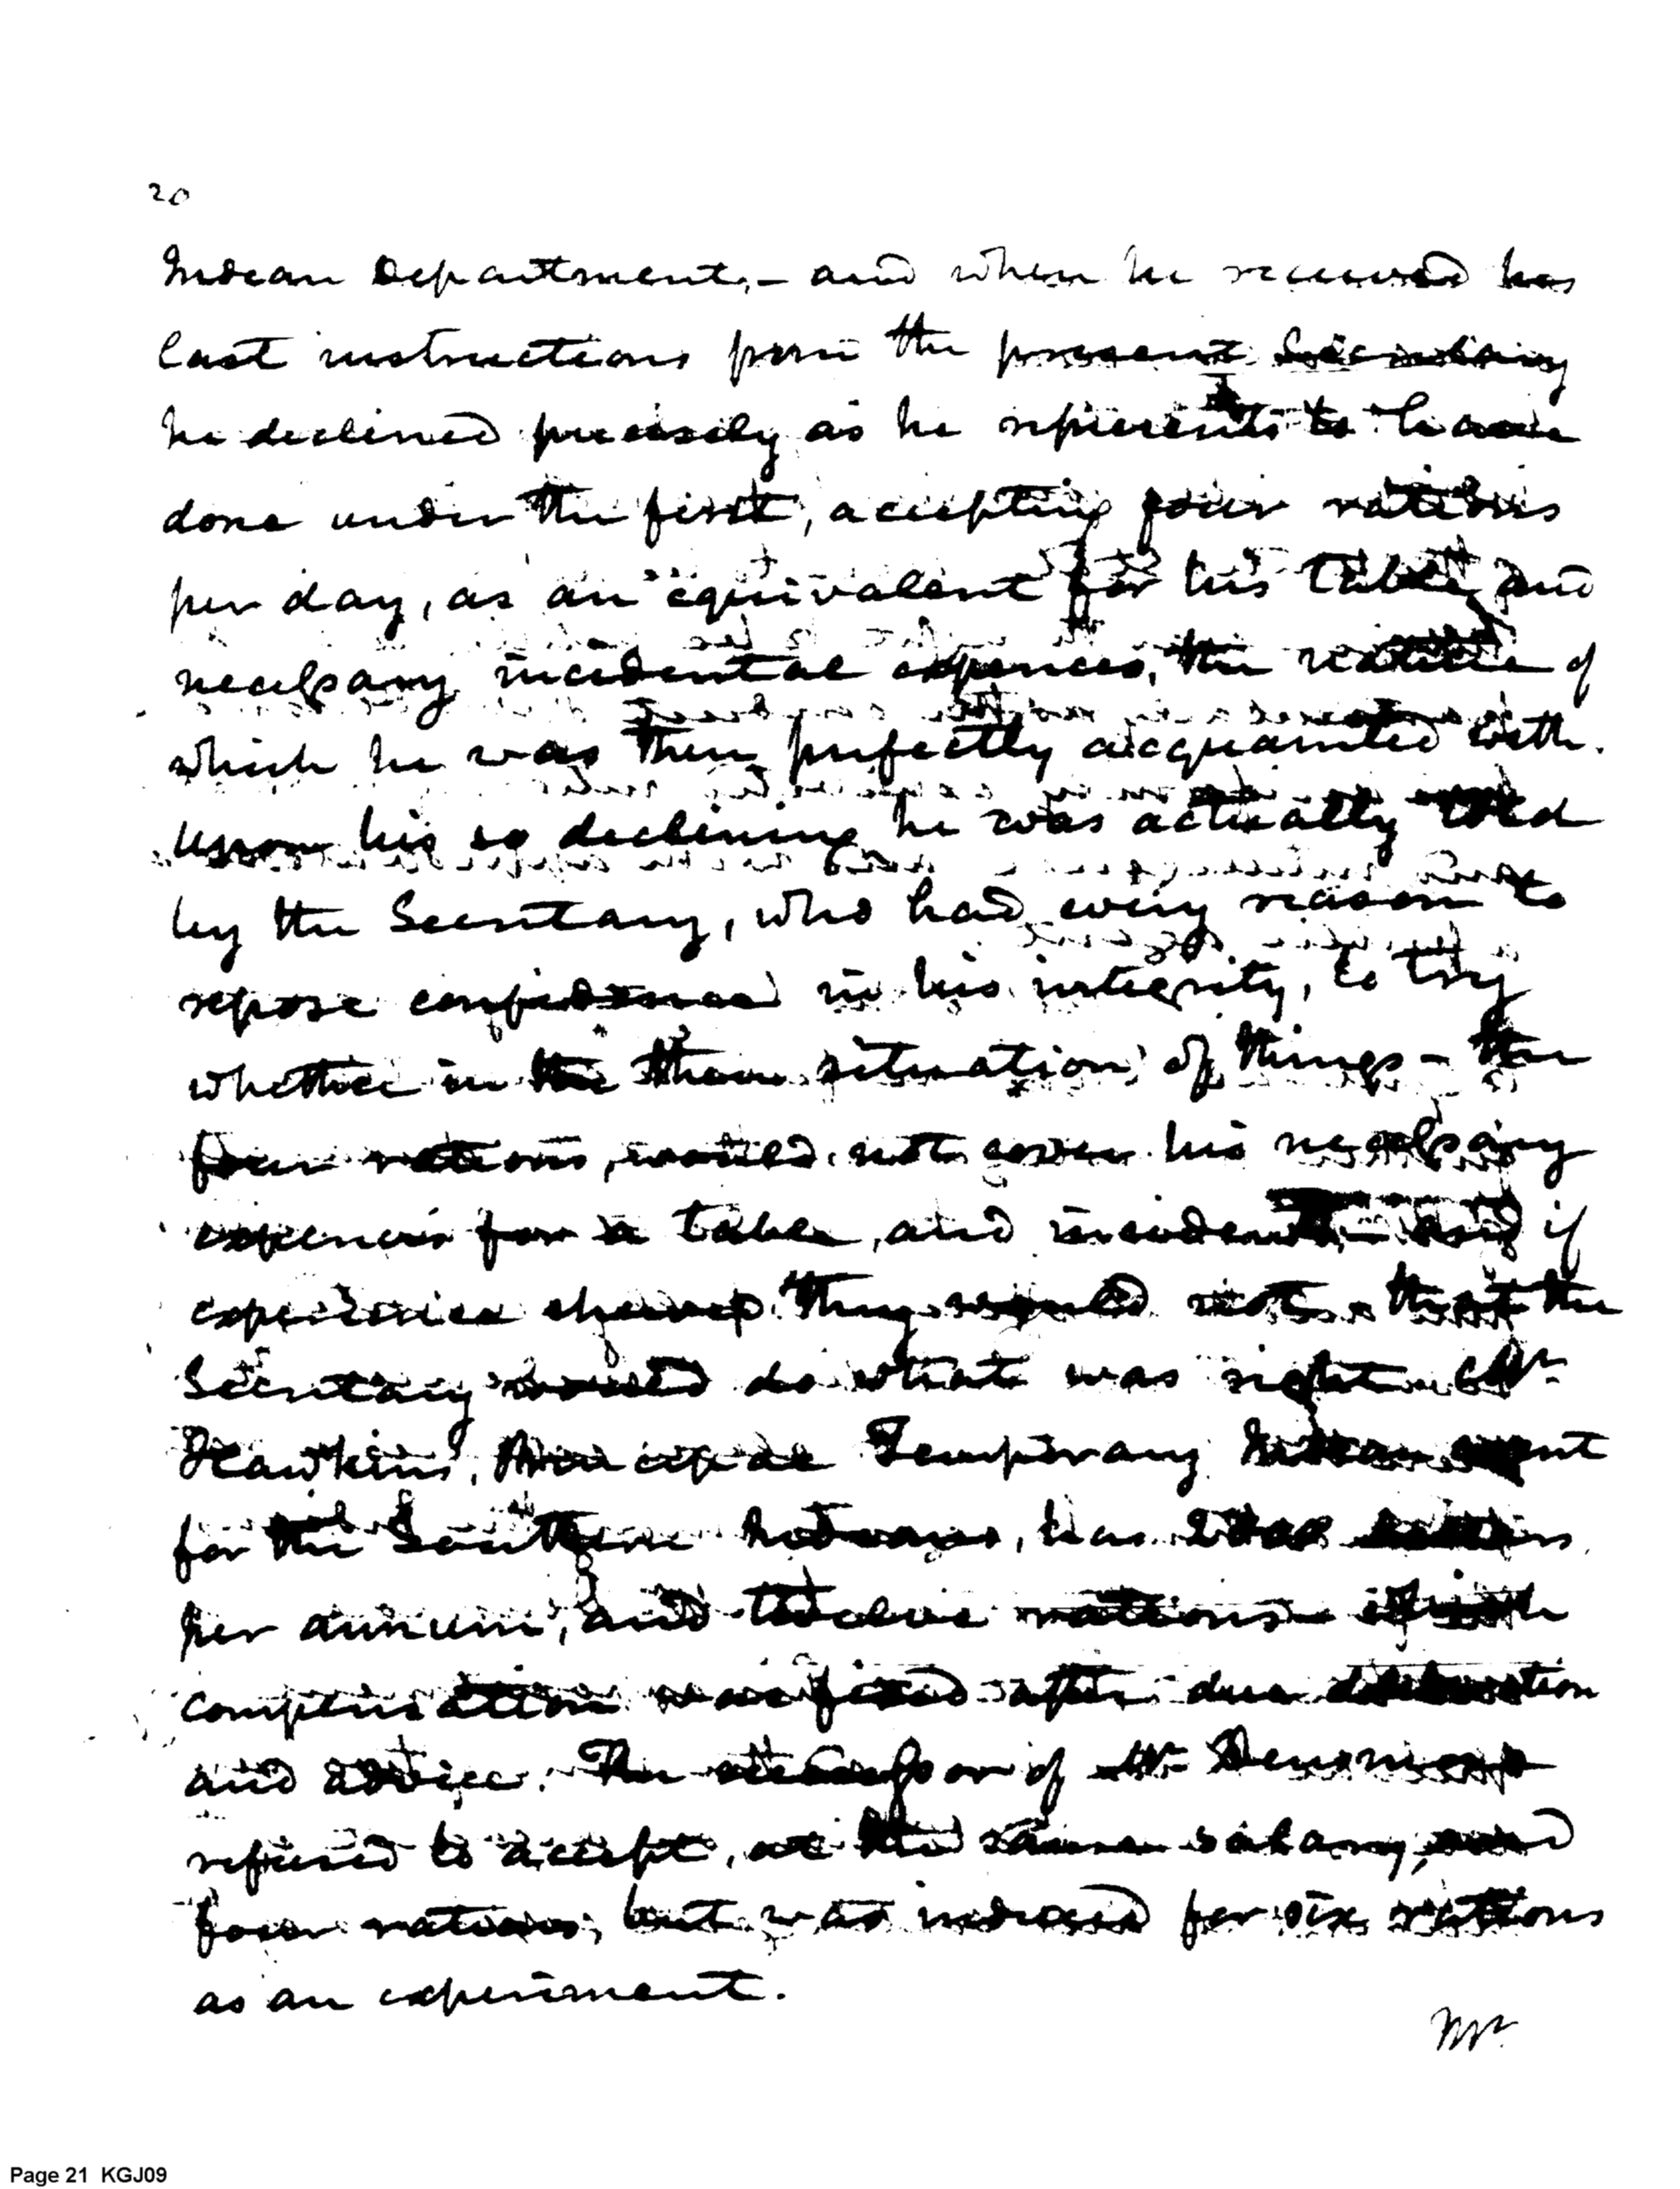 20
Indian Department,- and when he received his
last instructions from the present Secretary
he declined precisely as he represents to have
done under the first, accepting four rations
per day, as an equivalent for his table and
necessary incidental expences, the nature of
which he was then perfectly acquainted with.
Upon his so declining he was actually told
by the Secretary, who had every reason to
repose confidence in his integrity, to try
whether in the then situation of things - the
four rations, would not cover his necessary
expences for a table, and incidents - and if
experience shewed they would not - that the
Secretary would do what was right. Mr.
Hawkins, Principal Temporary Indian agent
for the Southern Indians, has dollars
per annum, and twelve rations - which
compensation was fixed after due deliberation
and advice. The successor of Mr. Dinsmoor
refused to accept, at the same salary, and
four rations, but was induced for six rations
as an experiment.
Mr.
Page 21 KGJ09